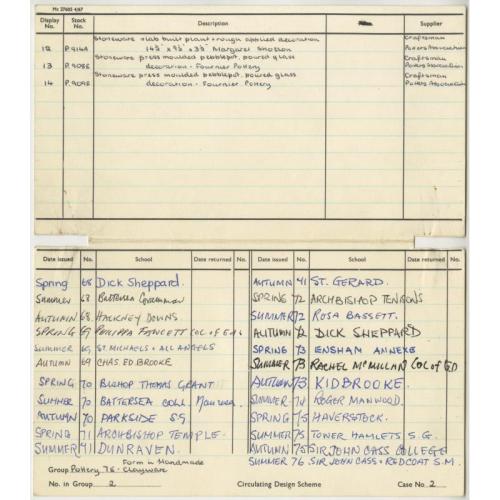 Mc 27602 4/67
Display No. Stock No. Description Supplier
12 P.914A Stoneware slab built plant trough applied decoration Craftsman
14½" x 9½" x 3½" Margaret Potters Association
13 P.908E Stoneware press moulded pebblepot, poured glass Craftsman
decoration - Fournier Pottery Potters Association
14 P.909E Stoneware press moulded pebblepot, poured glass Craftsman
decoration - Fournier Pottery Potters Association
Date issued No. School Date returned No. Date issued No. School Date returned No.
Spring 68 Dick Sheppard.
Summer 68 Battersea Grammar
AUTUMN 68 HACKNEY DOWNS
SPRING 69 PHILIPPA FAWCETT COL OF ED
SUMMER 69 ST. MICHAELS + ALL ANGELS
AUTUMN 69 CHAS. ED. BROOKE
SPRING 70 BISHOP THOMAS GRANT
SUMMER 70 BATTERSEA COLL.
AUTUMN 70 PARKSIDE SG
SPRING 71 ARCHBISHOP TEMPLE
SUMMER 71 DUNRAVEN.
AUTUMN 71 ST. GERARD.
SPRING 72 ARCHBISHOP TENISONS
SUMMER 72 ROSA BASSETT.
AUTUMN 72 DICK SHEPPARD
SPRING 73 ENSHAM ANNEXE
SUMMER 73 RACHEL McMILLAN COL of ED
AUTUMN 73 KIDBROOKE.
SUMMER 74 ROGER MANWOOD.
SPRING 75 HAVERSTOCK.
SUMMER 75 TOWER HAMLETS S.G.
AUTUMN 75 SIR JOHN CASS COLLEGE
SUMMER 76 SIR JOHN CASS + REDCOAT S.M.
Form in Handmade
Group Pottery 76 - Claywork
No. in Group 2 Circulating Design Scheme Case No. 2